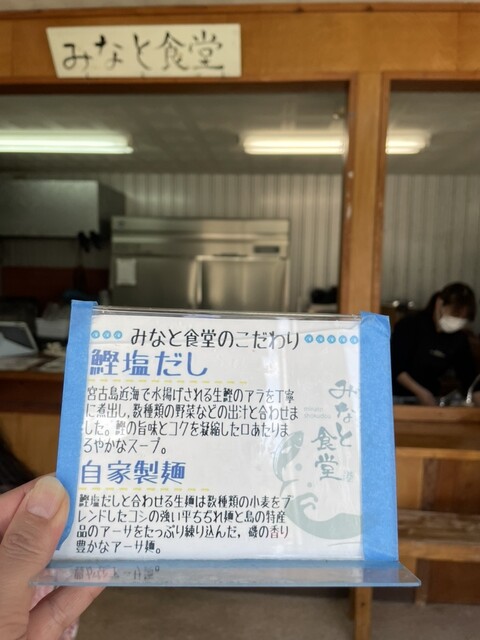 みなと食堂
みなと食堂のこだわり
鰹塩だし
宮古島近海で水揚げされる生鰹のアラを丁寧
に煮出し、数種類の野菜などの出汁と合わせま
した。鰹の旨味とコクを凝縮した口あたりま
ろやかなスープ。
自家製麺
鰹塩だしと合わせる生麺は数種類の小麦をブ
レンドしたコシの強い平ちぢれ麺と島の特産
品のアーサをたっぷり練り込んだ、磯の香り
豊かなアーサ麺。
みなと
食堂